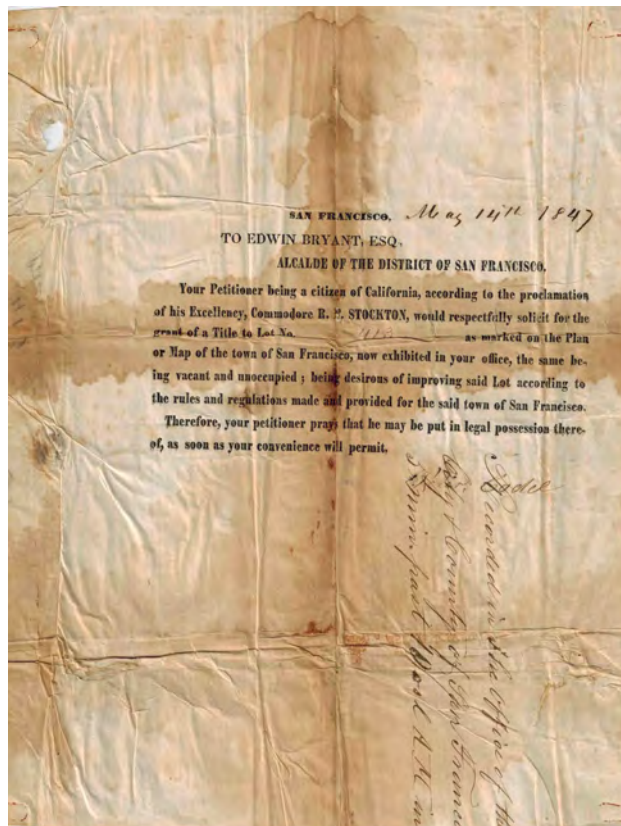 SAN FRANCISCO, May 14th 1847
TO EDWIN BRYANT, ESQ.
ALCALDE OF THE DISTRICT OF SAN FRANCISCO.
Your Petitioner being a citizen of California, according to the proclamation
of his Excellency, Commodore R. F. STOCKTON, would respectfully solicit for the
grant of a Title to Lot No. as marked on the Plan
or Map of the town of San Francisco, now exhibited in your office, the same be-
ing vacant and unoccupied ; being desirous of improving said Lot according to
the rules and regulations made and provided for the said town of San Francisco.
Therefore, your petitioner prays that he may be put in legal possession there-
of, as soon as your convenience will permit.
Recorded in the Office of the
City & County of San Franc
min. past A. M. in